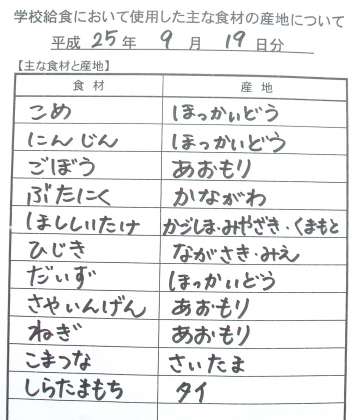 学校給食において使用した主な食材の産地について
平成 25 年 9 月 19 日分
【主な食材と産地】
食材 産地
こめ ほっかいどう
にんじん ほっかいどう
ごぼう あおもり
ぶたにく かながわ
ほししいたけ かごしま・みやざき・くまもと
ひじき ながさき・みえ
だいず ほっかいどう
さやいんげん あおもり
ねぎ あおもり
こまつな さいたま
しらたまもち タイ